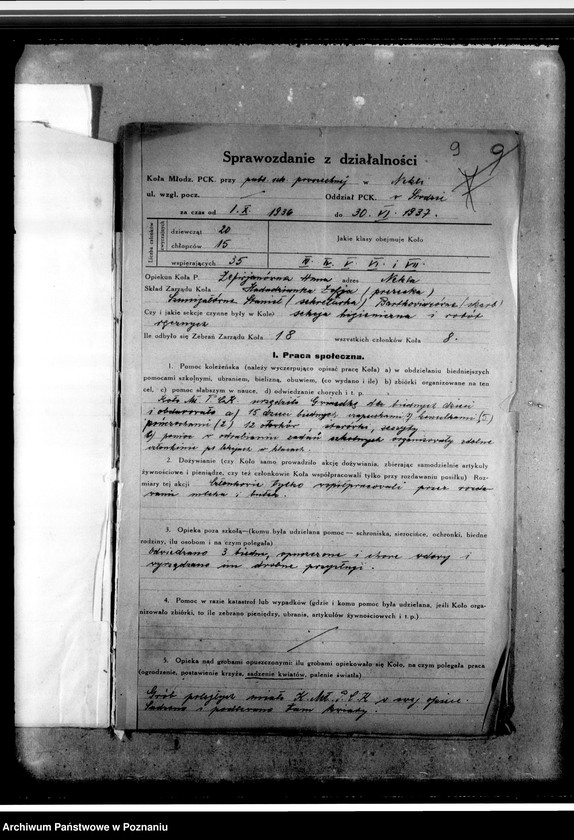 9 9
Sprawozdanie z działalności
Koła Młodz. PCK. przy publ. szk. powszechnej w Nekli
ul. wzgl. pocz. Oddział PCK. w Środzie
za czas od 1. X 1936 do 30. VI. 1937.
Liczba członków
zwyczajnych
dziewcząt 20
chłopców 15
wspierających 35
Jakie klasy obejmuje Koło
III. IV. V. VI. i VII.
Opiekun Koła P. Anna adres Nekla
Skład Zarządu Koła Zofja (prezeska)
(sekretarka) (skarb.)
Czy i jakie sekcje czynne były w Kole) sekcja higieniczna i robót
ręcznych
Ile odbyło się Zebrań Zarządu Koła 18 wszystkich członków Koła 8.
I. Praca społeczna.
1. Pomoc koleżeńska (należy wyczerpująco opisać pracę Koła) a) w obdzielaniu biedniejszych
pomocami szkolnymi, ubraniem, bielizną, obuwiem, (co wydano i ile) b) zbiórki organizowane na ten
cel, c) pomoc słabszym w nauce, d) odwiedzanie chorych i t. p.
Koło Mł. P.C.K. urządziło Gwiazdkę dla biednych dzieci
i obdarowało a) 15 dzieci biednych koszulkami (5)
pończochami (2) 12 ołówków, zeszyty
b) pomoc w odrabianiu zadań szkolnych organizowały zdolne
członkinie po lekcjach w klasach.
2. Dożywianie (czy Koło samo prowadziło akcję dożywiania, zbierając samodzielnie artykuły
żywnościowe i pieniądze, czy też członkowie Koła współpracowali tylko przy rozdawaniu posiłku) Roz-
miary tej akcji Członkowie tylko współpracowali przez rozda-
wanie mleka i bułek.
3. Opieka poza szkołą—(komu była udzielana pomoc — schroniska, sierocińce, ochronki, biedne
rodziny, ilu osobom i na czym polegała)
Odwiedzano 3 biedne, opuszczone i chore wdowy i
wyrządzano im drobne przysługi.
4. Pomoc w razie katastrof lub wypadków (gdzie i komu pomoc była udzielana, jeśli Koło orga-
nizowało zbiórki, to ile zebrano pieniędzy, ubrania, artykułów żywnościowych i t. p.)
5. Opieka nad grobami opuszczonymi: ilu grobami opiekowało się Koło, na czym polegała praca
(ogrodzenie, postawienie krzyża, sadzenie kwiatów, palenie światła)
Grób poległych miało K. Mł. P.C.K w swej opiece.
Sadzono i podlewano tam kwiaty.
Archiwum Państwowe w Poznaniu